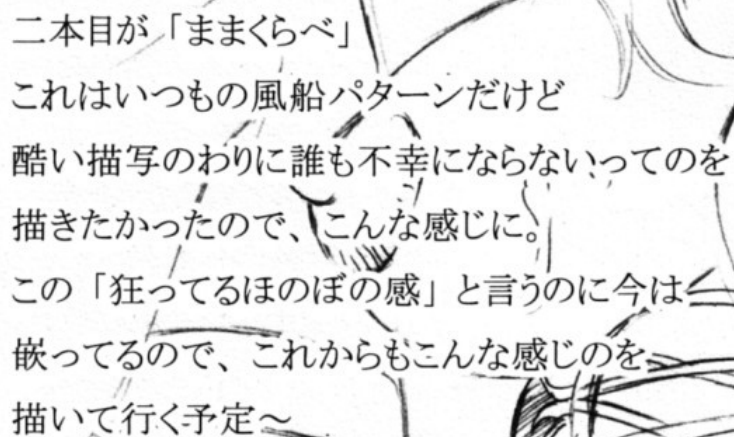 二本目が「ままくらべ」
これはいつもの風船パターンだけど
酷い描写のわりに誰も不幸にならないってのを
描きたかったので、こんな感じに。
この「狂ってるほのぼの感」と言うのに今は
嵌ってるので、これからもこんな感じのを
描いて行く予定～